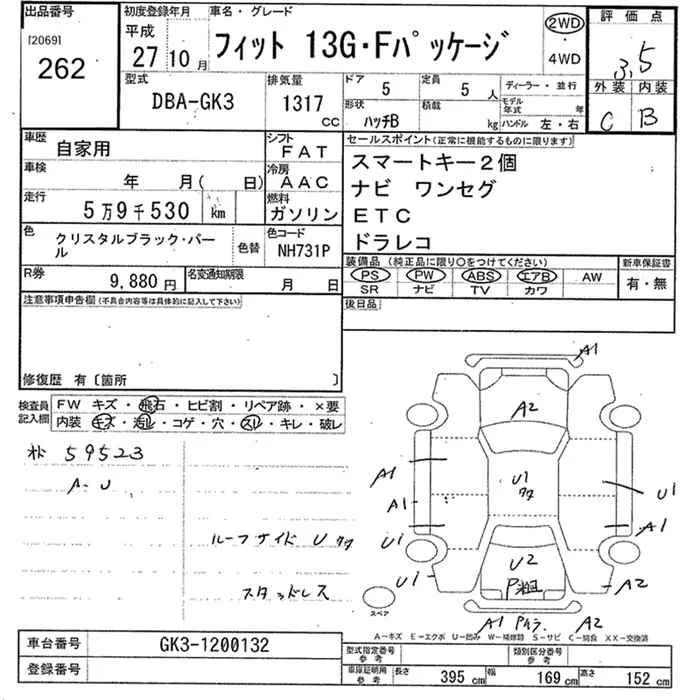 出品番号
[2069]
262
初度登録年月
平成
27 10月
車名・グレード
フィット 13G・Fパッケージ
2WD
4WD
評価点
3.5
外装 内装
C B
型式
DBA-GK3
排気量
1317
CC
ドア
5
定員
5 人
形状
ハッチB
積載
kg
ディーラー・並行
モデル年式
年
ハンドル 左・右
車歴
自家用
シフト
FAT
車検
年 月( 日)
冷房
AAC
走行
5万9千530 km
燃料
ガソリン
色
クリスタルブラック・パール
色替
色コード
NH731P
R券
9,880円
名変通知期限
月 日
セールスポイント(正常に機能するものに限ります)
スマートキー2個
ナビ ワンセグ
ETC
ドラレコ
装備品(純正品に限り○をつけてください)
PS PW ABS エアB AW
SR ナビ TV カワ
新車保証書
有・無
後日品
注意事項申告欄(不具合内容等は具体的に記入して下さい)
修復歴 有〔箇所 〕
検査員記入欄
FW キズ・飛石・ヒビ割・リペア跡・×要
内装 キズ・汚レ・コゲ・穴・スレ・キレ・破レ
59523
A-U
ルーフサイド U
スタッドレス
A1
A2
U1
A1
A1
U1
U1
U1
A1
U2
P
A2
A1
A2
スペア
A－キズ E－エクボ U－凹み W－補修跡 S－サビ C－腐食 XX－交換済
車台番号
GK3-1200132
登録番号
型式指定番号参考
類別区分番号参考
車庫証明用参考
長さ 395 cm
幅 169 cm
高さ 152 cm